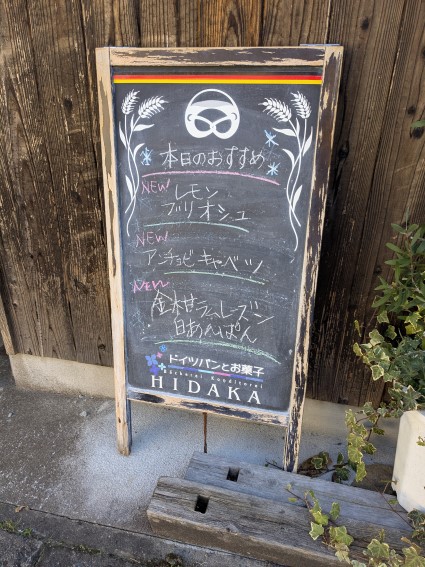 本日のおすすめ
NEW レモン
ブリオシュ
NEW
アンチョビ キャベツ
NEW
金柑ラムレーズン
白あんぱん
ドイツパンとお菓子
Bäckerei Konditorei
HIDAKA